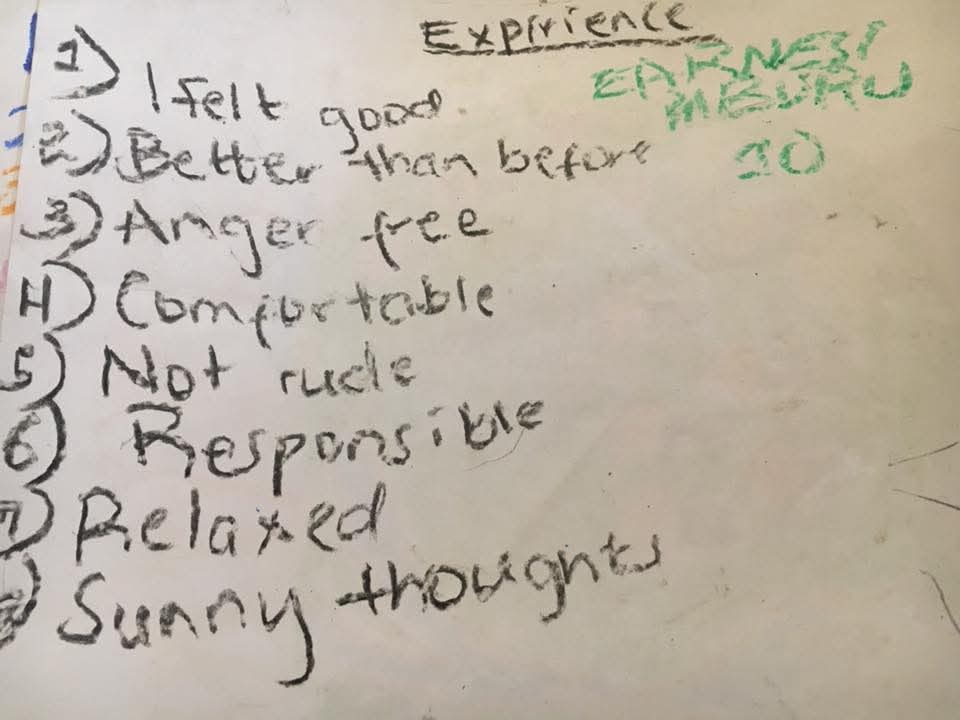 Expirience
EARNEST
MBURU
10
1) I felt good.
2) Better than before
3) Anger free
4) Comfortable
5) Not rude
6) Responsible
7) Relaxed
8) Sunny thoughts